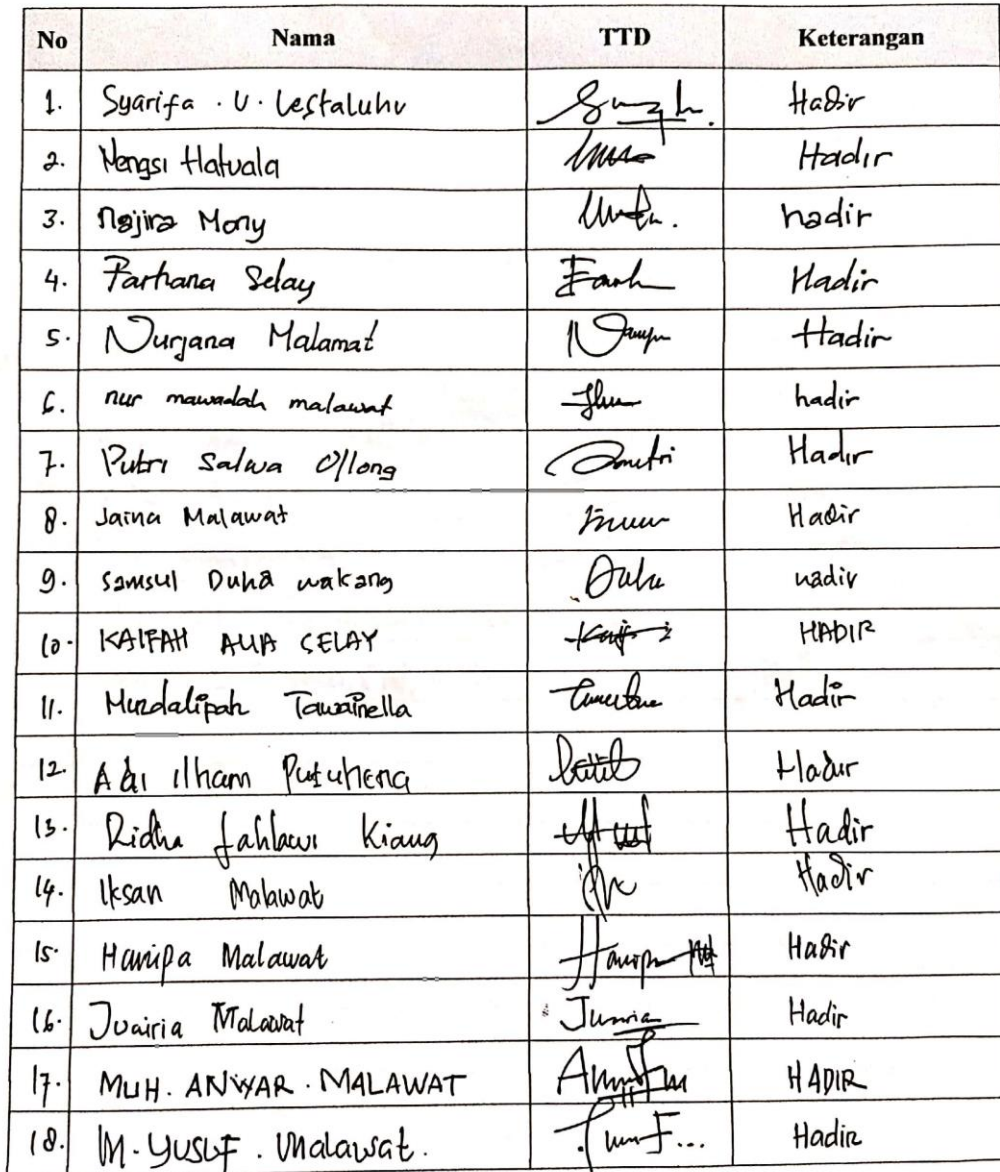 No Nama TTD Keterangan
1. Syarifa . U . Lestaluhu Hadir
2. Nengsi Hatuala Hadir
3. Najira Mony hadir
4. Farhana Selay Farh Hadir
5. Nurjana Malamat Hadir
6. nur mawadah malawat hadir
7. Putri Salwa Ollong Hadir
8. Jaina Malawat Hadir
9. Samsul Duha wakang hadir
10. KAIFAH AULIA SELAY HADIR
11. Tawainella Hadir
12. Adi Ilham Putuhena Hadir
13. Ridha fahlawi Kiang Hadir
14. Iksan Malawat Hadir
15. Hanipa Malawat Hadir
16. Juairia Malawat Hadir
17. MUH. ANWAR . MALAWAT HADIR
18. M. YUSUF . Malawat. Hadir